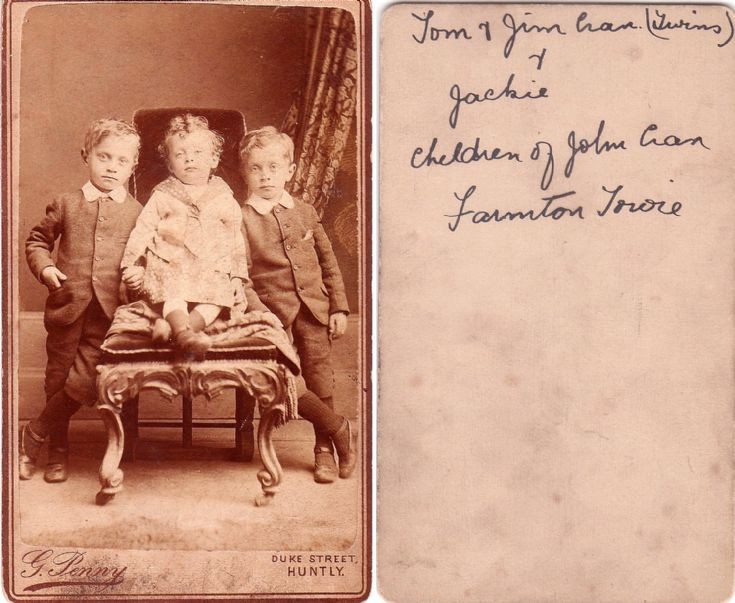 G. Penny
DUKE STREET,
HUNTLY.
Tom & Jim Cran. (Twins)
&
Jackie
Children of John Cran
Farmton Towie